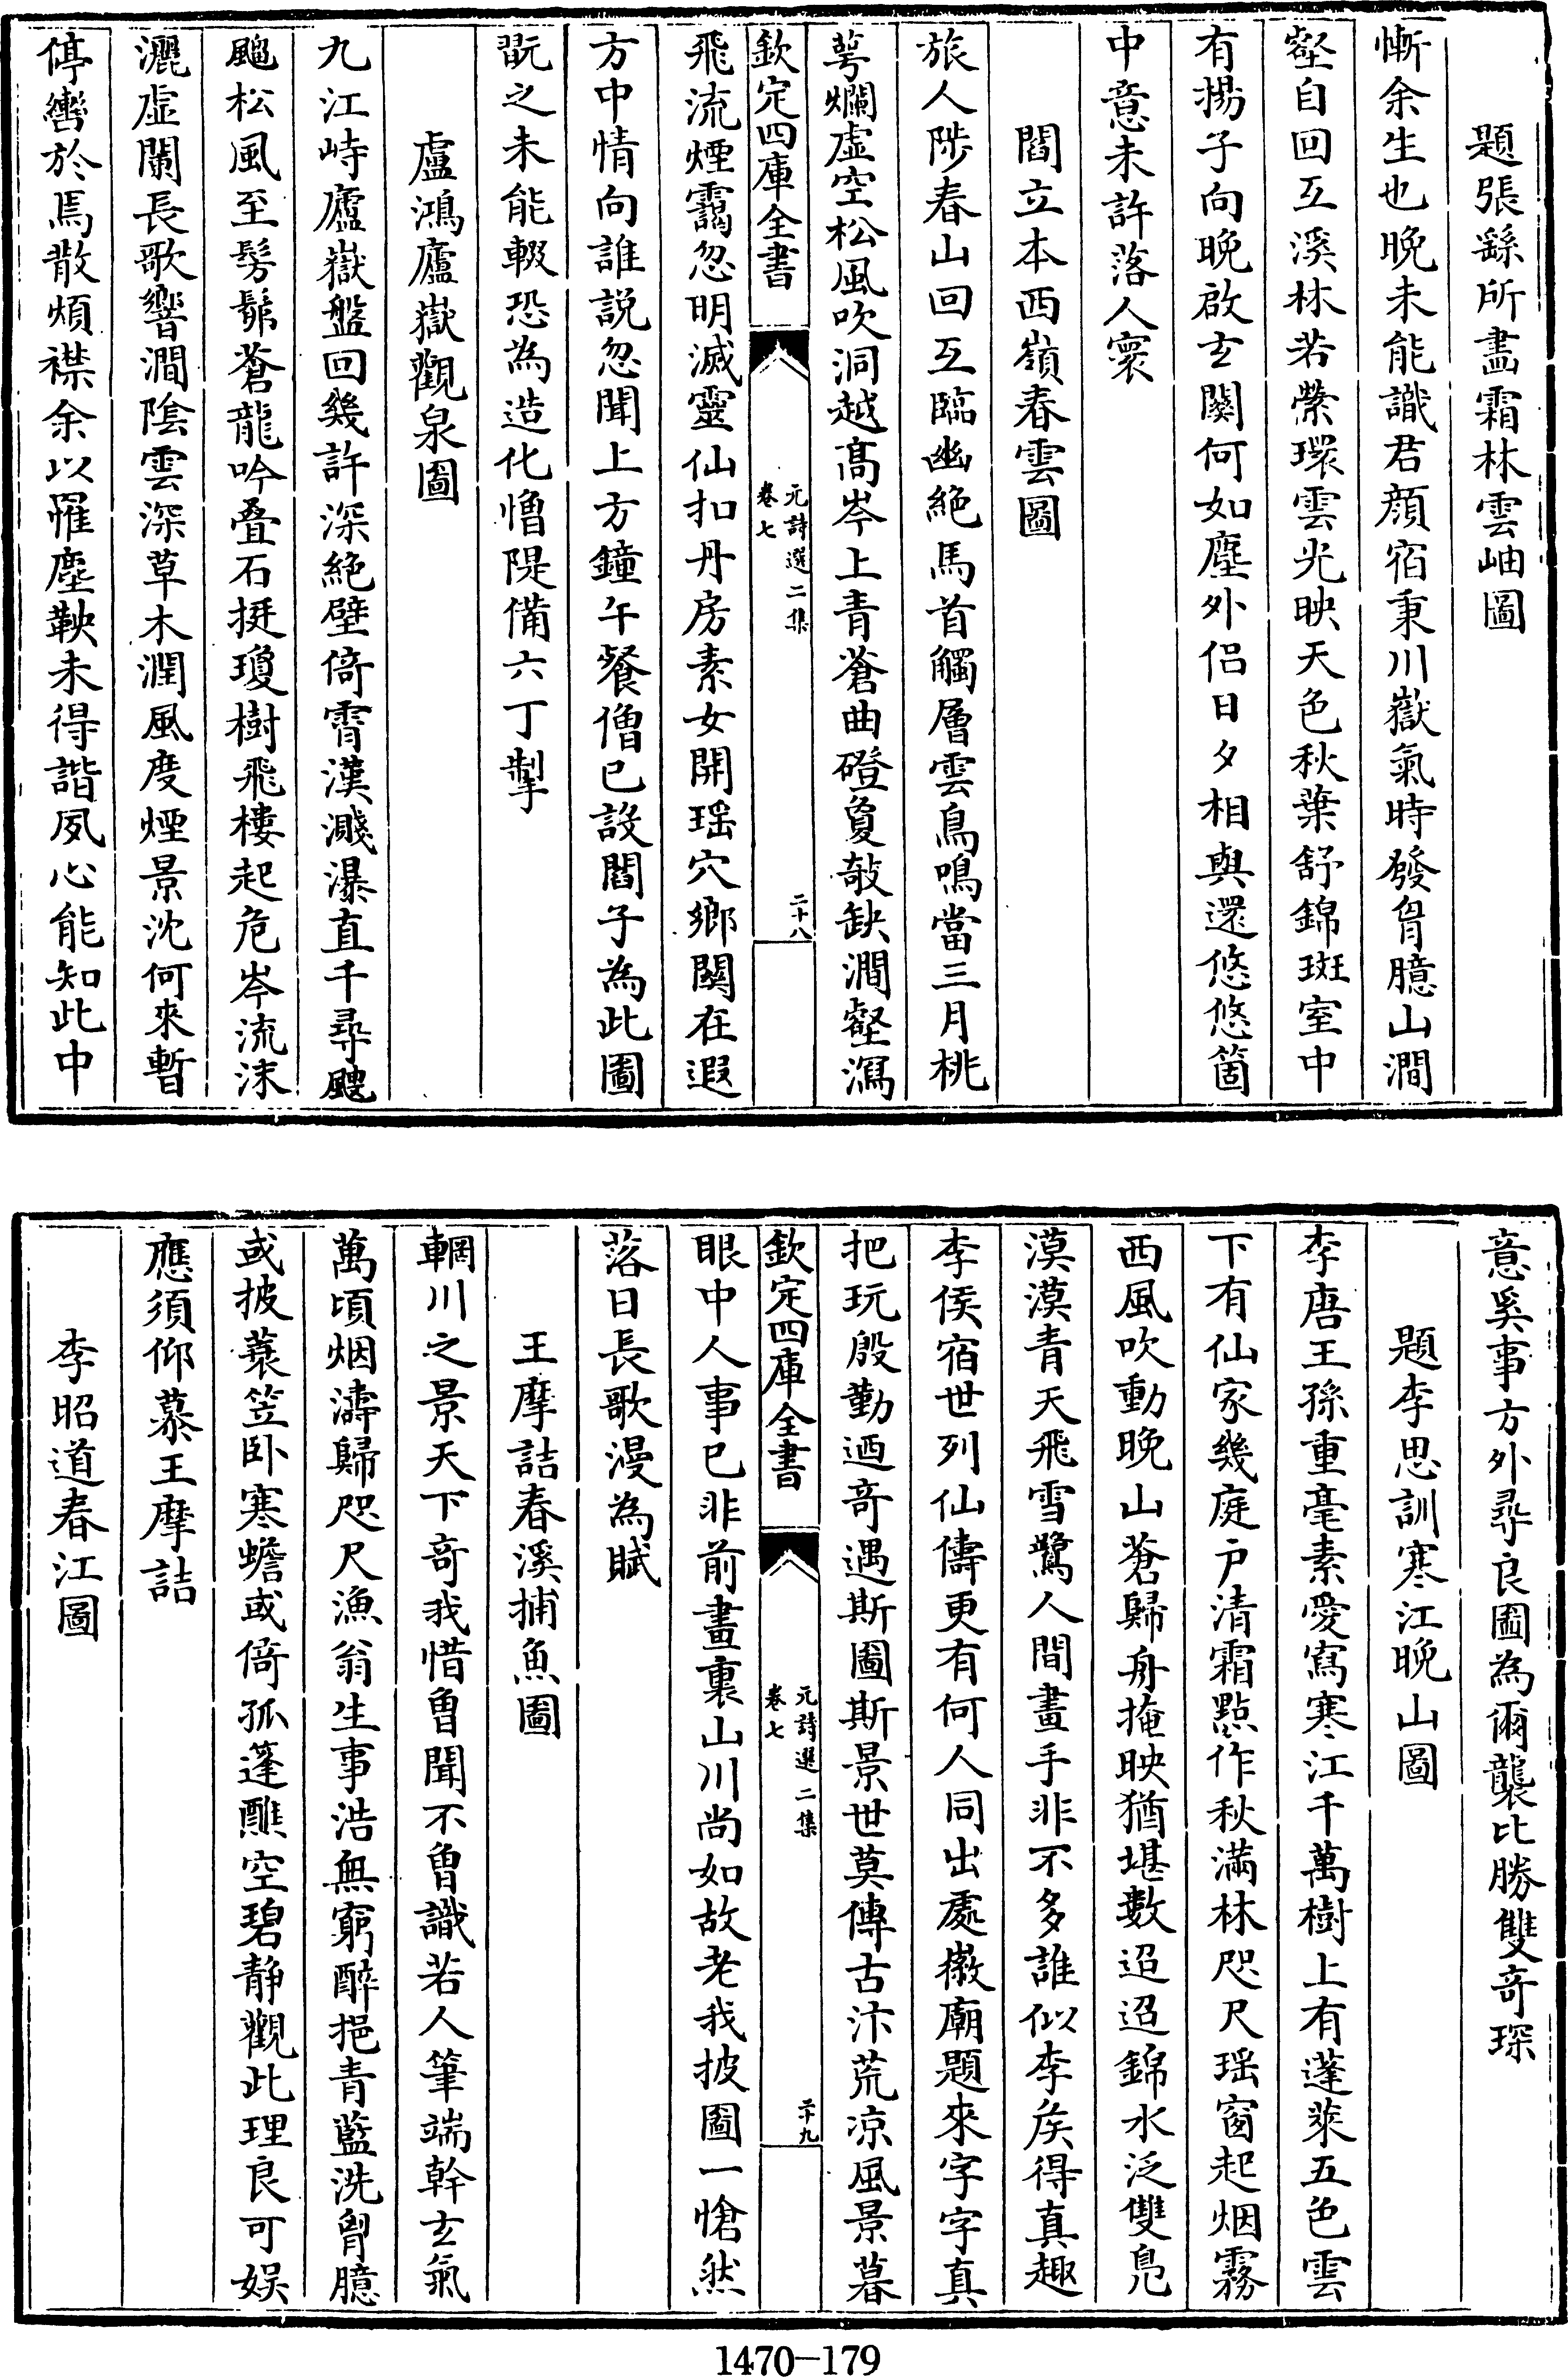 題張繇所畫霜林雲岫圖
慚余生也晚未能識君顔宿秉川嶽氣時發胷臆山澗
壑自回互溪林若縈環雲光映天色秋葉舒錦斑室中
有揚子向晚啟玄關何如塵外侣日夕相與還悠悠箇
中意未許落人寰
閻立本西嶺春雲圖
旅人陟春山回互臨幽絶馬首觸層雲鳥鳴當三月桃
萼爛虛空松風吹洞越高岑上青蒼曲磴敻敧缺澗壑瀉
欽定四庫全書
元詩選二集
卷七
二十八
飛流煙靄忽明滅靈仙扣丹房素女開瑶穴鄉關在遐
方中情向誰説忽聞上方鐘午餐僧已設閻子為此圖
翫之未能輟恐為造化憎隄備六丁掣
盧鴻廬嶽觀泉圖
九江峙廬嶽盤回幾許深絶壁倚霄漢濺瀑直千尋颼
飀松風至髣髴蒼龍吟叠石挺瓊樹飛樓起危岑流沫
灑虛闌長歌響澗陰雲深草木潤風度煙景沈何來暫
停轡於焉散煩襟余以罹塵鞅未得諧夙心能知此中
意奚事方外尋良圖為爾襲比勝雙竒琛
題李思訓寒江晚山圖
李唐王孫重毫素愛寫寒江千萬樹上有蓬萊五色雲
下有仙家幾庭户清霜㸃作秋滿林咫尺瑶窗起烟霧
西風吹動晚山蒼歸舟掩映猶堪數迢迢錦水泛雙鳬
漠漠青天飛雪鷺人間畫手非不多誰似李侯得真趣
李侯宿世列仙儔更有何人同出處徽廟題來字字真
把玩殷勤迺竒遇斯圖斯景世莫傳古汴荒凉風景暮
欽定四庫全書
元詩選二集
卷七
二十九
眼中人事已非前畫裏山川尚如故老我披圖一愴然
落日長歌漫為賦
王摩詰春溪捕魚圖
輞川之景天下竒我惜曾聞不曾識若人筆端斡玄氣
萬頃烟濤歸咫尺漁翁生事浩無窮醉挹青藍洗胷臆
或披蓑笠卧寒蟾或倚孤蓬醮空碧靜觀此理良可娱
應須仰慕王摩詰
李昭道春江圖
1470—179